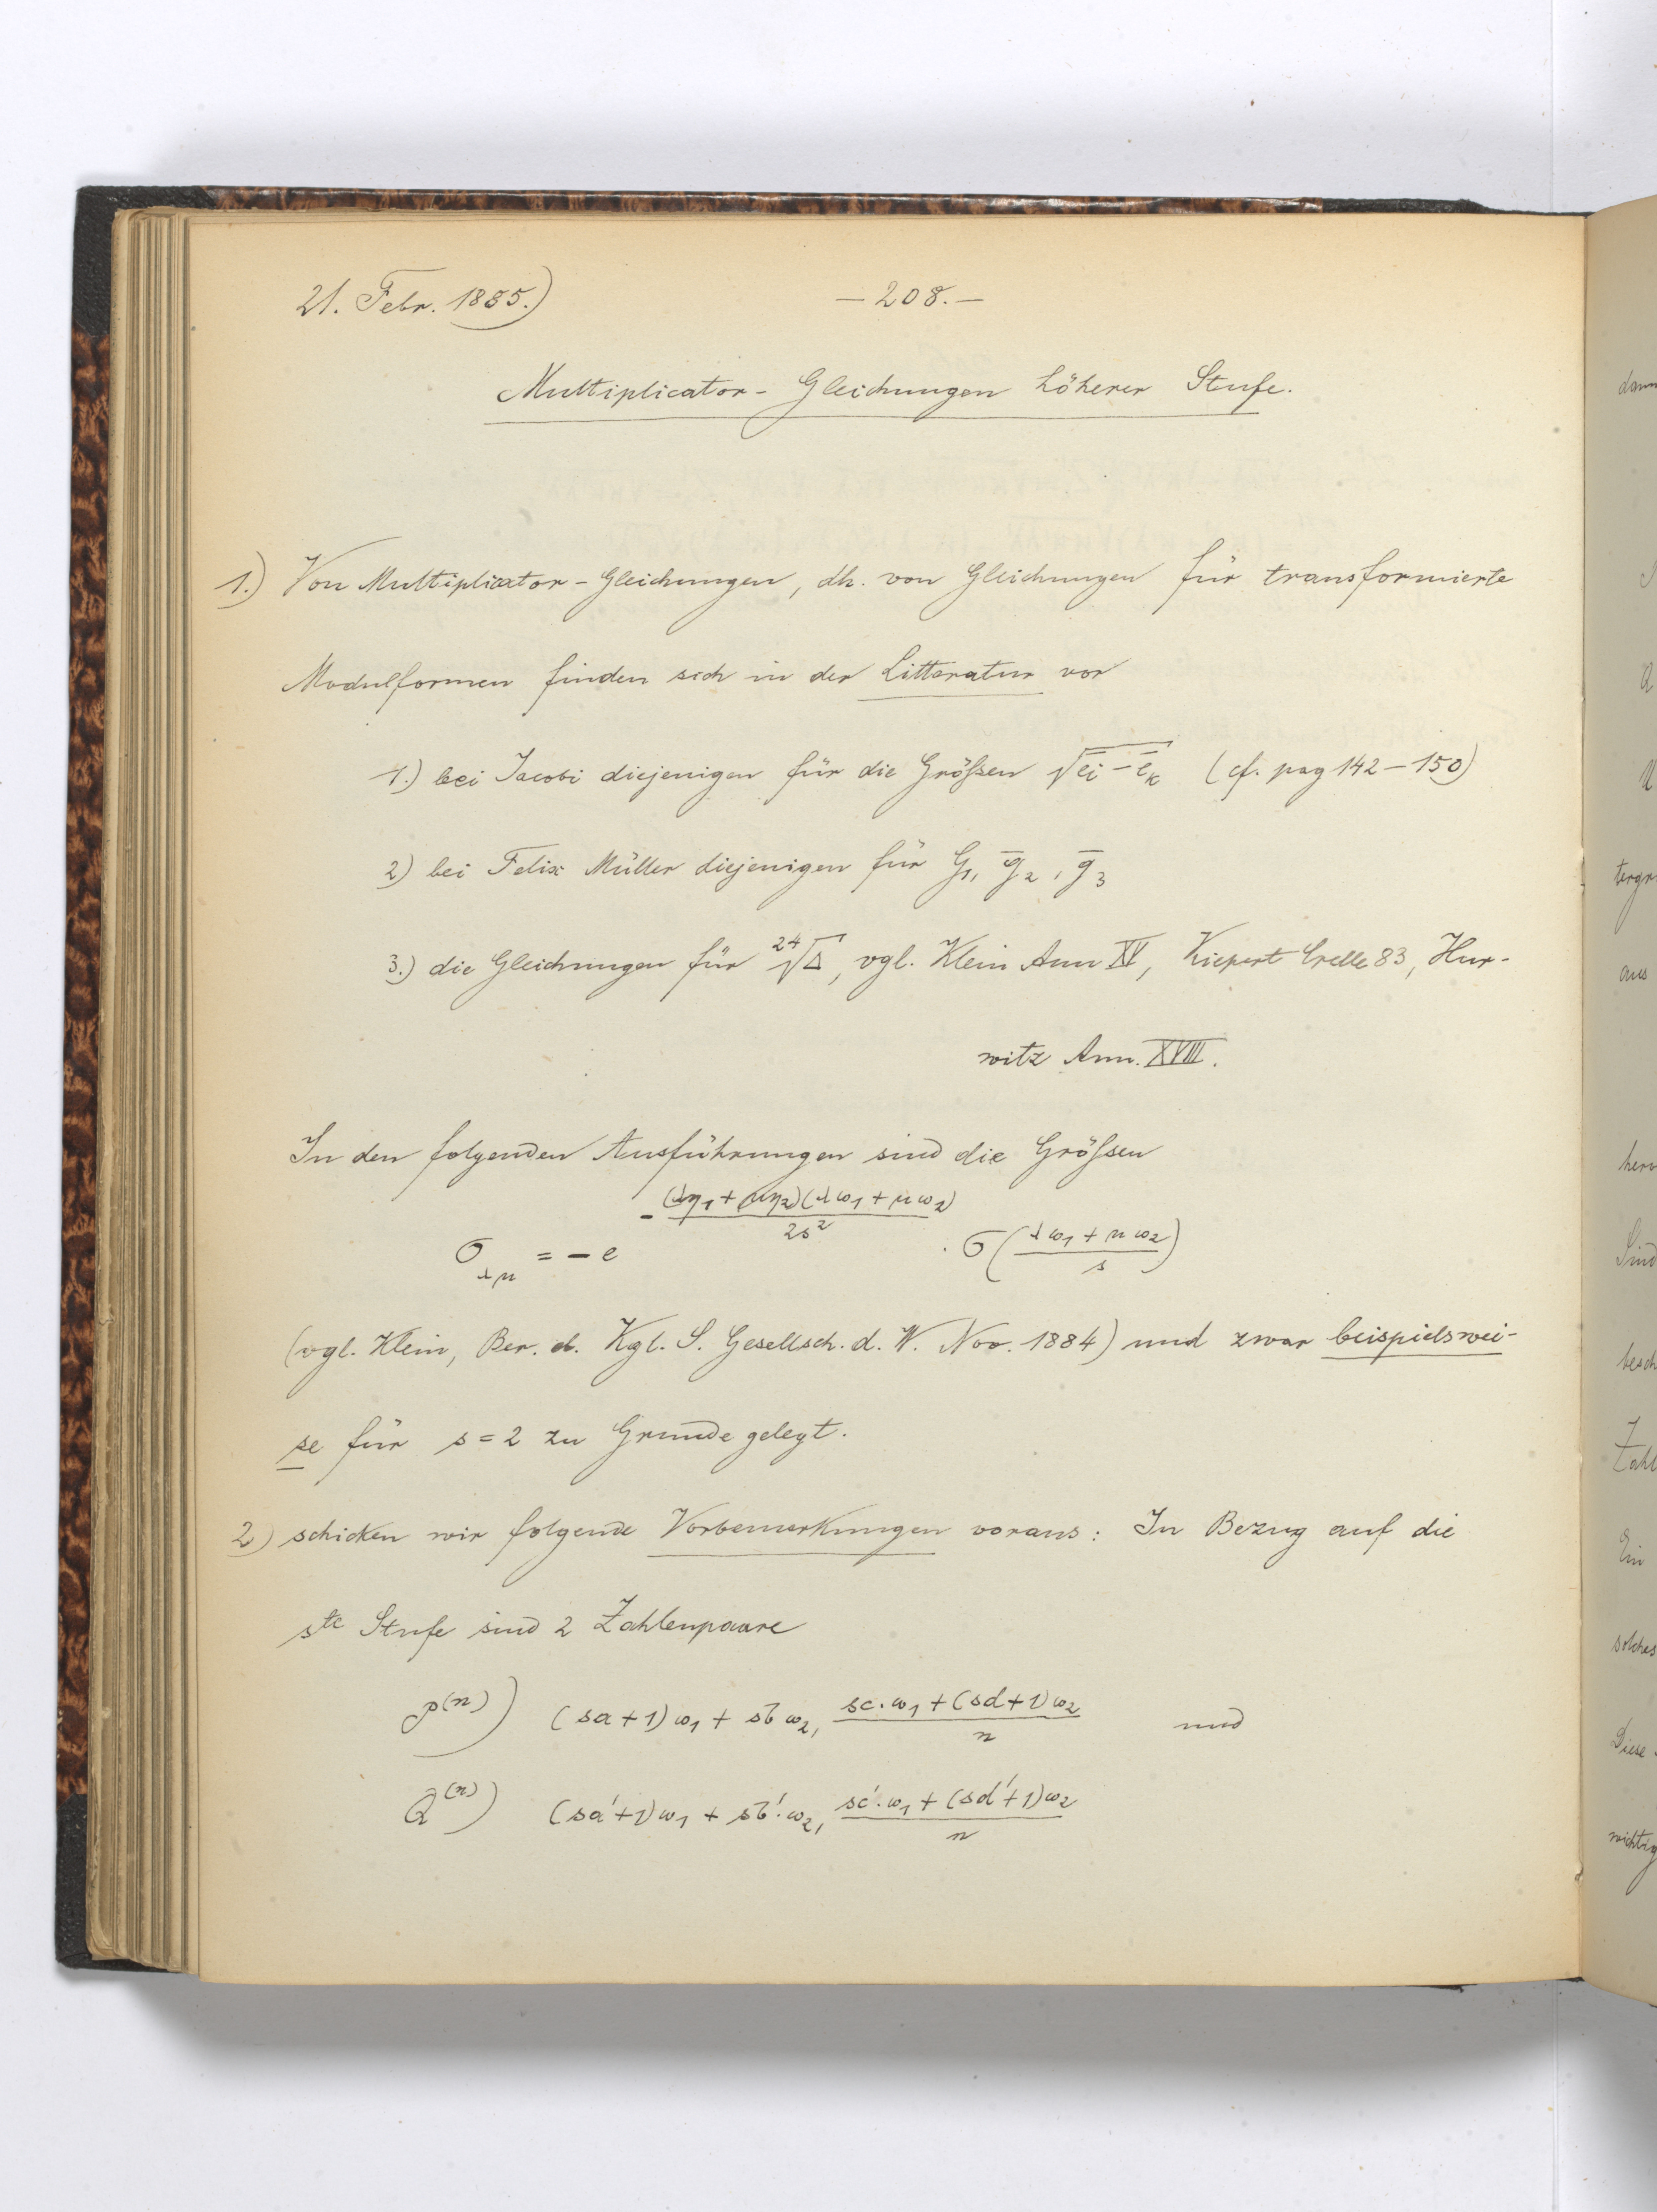 21. Febr. 1885.) — 208. —
Multiplicator - Gleichungen höherer Stufe.
1.) Von Multiplicator - Gleichungen, dh. von Gleichungen für transformierte
Modulformen finden sich in der Litteratur vor
1.) bei Jacobi diejenigen für die Größen √(e̅ᵢ − e̅ₖ) (cf. pag 142 — 150)
2) bei Felix Müller diejenigen für G₁, g̅₂, g̅₃
3.) die Gleichungen für ²⁴√Δ, vgl. Klein Ann XV, Kiepert Crelle 83, Hur-
witz Ann. XVIII.
In den folgenden Ausführungen sind die Größen
σ_λμ = − e^(−(λη₁ + μη₂)(λω₁ + μω₂)/2s²) · σ((λω₁ + μω₂)/s)
(vgl. Klein, Ber. d. Kgl. S. Gesellsch. d. W. Nov. 1884) und zwar beispielswei-
se für s = 2 zu Grunde gelegt.
2) schicken wir folgende Vorbemerkungen voraus: In Bezug auf die
ste Stufe sind 2 Zahlenpaare
P⁽ⁿ⁾) (sa + 1)ω₁ + sb ω₂, (sc·ω₁ + (sd + 1)ω₂)/n und
Q⁽ⁿ⁾) (sa' + 1)ω₁ + sb'·ω₂, (sc'·ω₁ + (sd' + 1)ω₂)/n
dann
aus
Sind
Ein
solches
Diese
wichtig